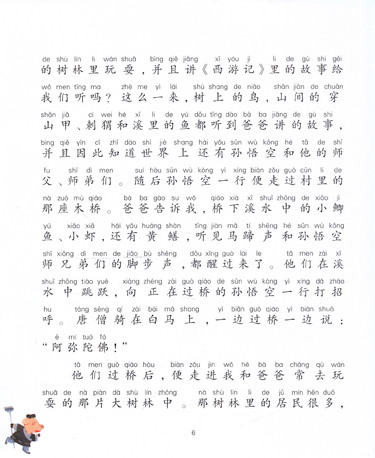 de shù lín li wán shuǎ bìng qiě jiǎng xī yóu jì li de gù shi gěi
的树林里玩耍，并且讲《西游记》里的故事给
wǒ men tīng ma zhè me yì lái shù shang de niǎo shān jiān de chuān
我们听吗？这么一来，树上的鸟，山间的穿
shān jiǎ cì wei hé xī li de yú dōu tīng dào bà ba jiǎng de gù shi
山甲、刺猬和溪里的鱼都听到爸爸讲的故事，
bìng qiě yīn cǐ zhī dào shì jiè shang hái yǒu sūn wù kōng hé tā de shī
并且因此知道世界上还有孙悟空和他的师
fu shī dì men suí hòu sūn wù kōng yì xíng biàn zǒu guò cūn li de
父、师弟们。随后孙悟空一行便走过村里的
nà zuò mù qiáo bà ba gào su wǒ qiáo xià xī shuǐ zhōng de xiǎo jì
那座木桥。爸爸告诉我，桥下溪水中的小鲫
yú xiǎo xiā hái yǒu huáng shàn tīng jiàn mǎ tí shēng hé sūn wù kōng
鱼、小虾，还有黄鳝，听见马蹄声和孙悟空
shī xiōng dì men de jiǎo bù shēng dōu xǐng guò lái le tā men zài xī
师兄弟们的脚步声，都醒过来了。他们在溪
shuǐ zhōng tiào yuè xiàng zhèng zài guò qiáo de sūn wù kōng yì xíng dǎ zhāo
水中跳跃，向正在过桥的孙悟空一行打招
hu táng sēng qí zài bái mǎ shang yì biān guò qiáo yì biān shuō
呼。唐僧骑在白马上，一边过桥一边说：
ē mí tuó fó
“阿弥陀佛！”
tā men guò qiáo hòu biàn zǒu jìn wǒ hé bà ba cháng qù wán
他们过桥后，便走进我和爸爸常去玩
shuǎ de nà piàn dà shù lín zhōng nà shù lín li de jū mín hěn duō
耍的那片大树林中。那树林里的居民很多，
6